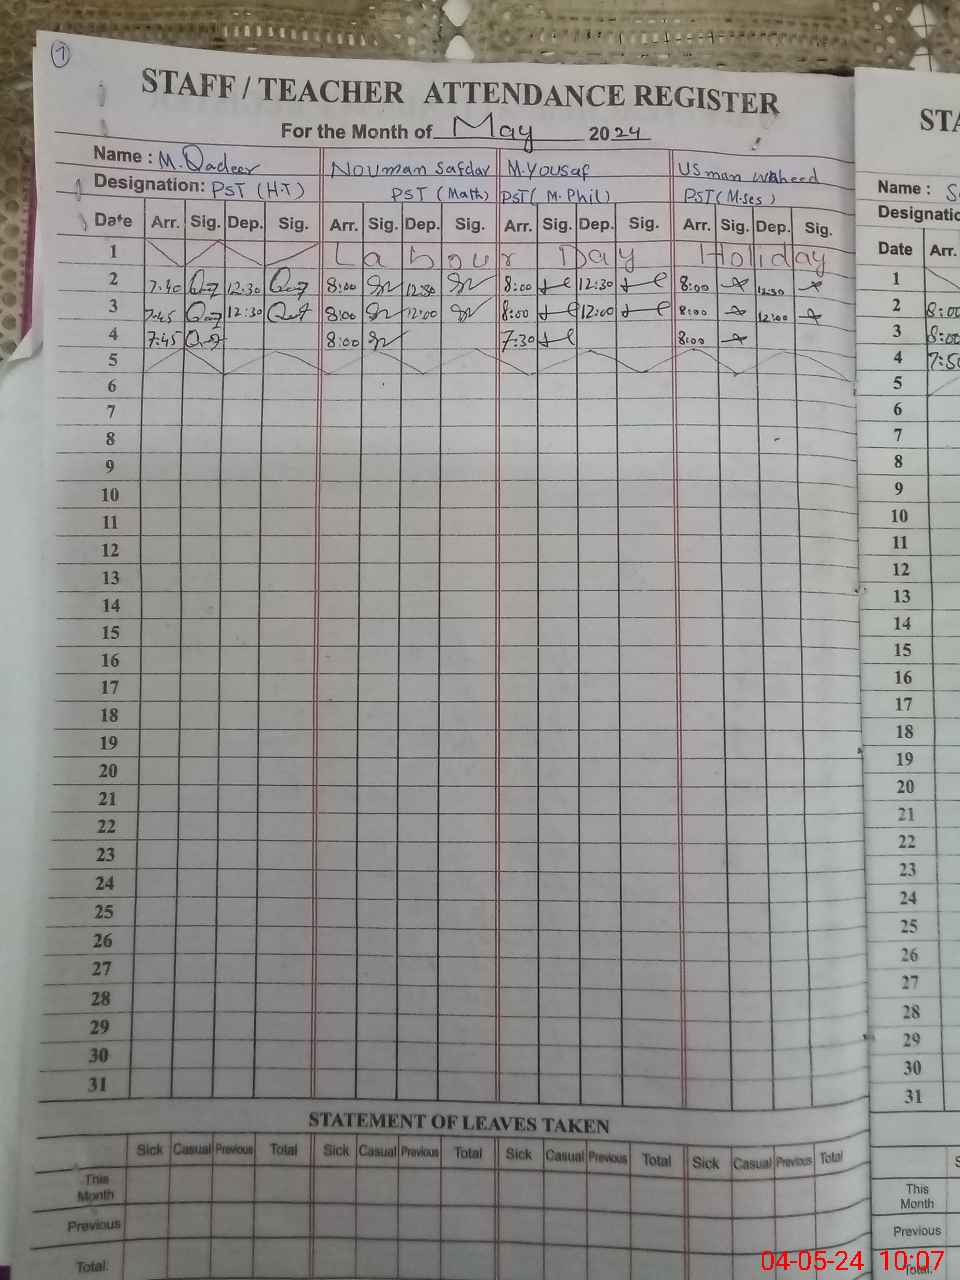 1
STAFF / TEACHER ATTENDANCE REGISTER
For the Month of May 2024
Name : M. Qadeer Nouman Safdar M. Yousaf Usman Waheed
Designation: PST (H.T) PST (Math) PST ( M. Phil ) PST ( M.Ses )
Date Arr. Sig. Dep. Sig. Arr. Sig. Dep. Sig. Arr. Sig. Dep. Sig. Arr. Sig. Dep. Sig.
1 Labour Day Holiday
2 7:40 12:30 8:00 12:30 8:00 12:30 8:00 12:30
3 7:45 12:30 8:00 12:00 8:00 12:00 8:00 12:00
4 7:45 8:00 7:30 8:00
5
6
7
8
9
10
11
12
13
14
15
16
17
18
19
20
21
22
23
24
25
26
27
28
29
30
31
STATEMENT OF LEAVES TAKEN
Sick Casual Previous Total Sick Casual Previous Total Sick Casual Previous Total Sick Casual Previous Total
This Month
Previous
Total:
STA
Name :
Designatio
Date Arr.
1
2 8:00
3 8:00
4 7:50
5
6
7
8
9
10
11
12
13
14
15
16
17
18
19
20
21
22
23
24
25
26
27
28
29
30
31
This
Month
Previous
Total:
04-05-24 10:07